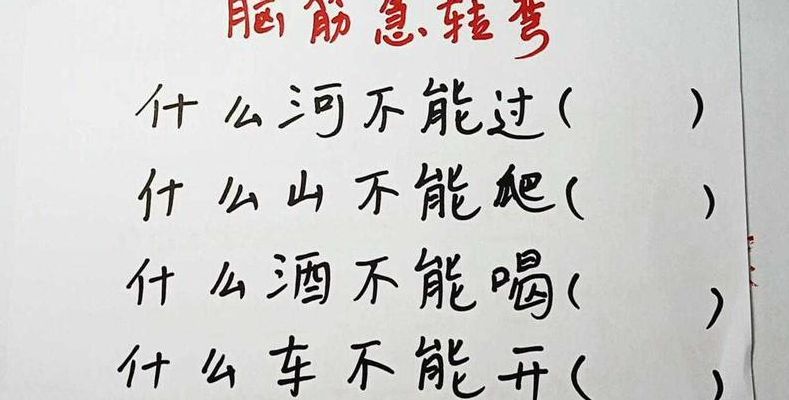 脑筋急转弯
什么河不能过( )
什么山不能爬( )
什么酒不能喝( )
什么车不能开( )